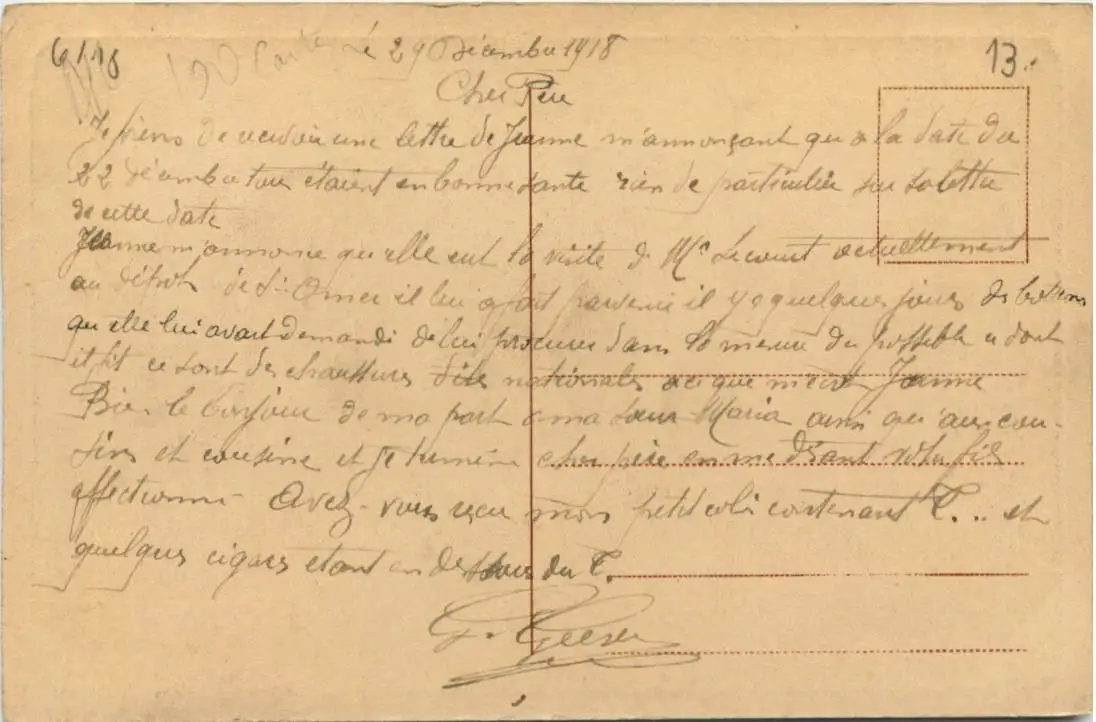 6/1/18 Le 29 Décembre 1918 13.
Cher Père
Je viens de recevoir une lettre de Jeanne m'annonçant qu'a la date du
22 décembre tous étaient en bonne sante rien de particulier sur sa lettre
de cette date
Jeanne m'annonce qu'elle eut la visite de Mr Lecourt actuellement
au dépôt de St Omer il lui a fait parvenir il y a quelques jours des
qu'elle lui avait demandé de lui procurer dans la mesure du possible dont
il fit ce sont des chaussures dites nationales Jeanne
Bien le bonjour de ma part a ma sœur Maria ainsi qu'aux cou-
sins et cousine et je termine cher père en me disant votre fils
affectionné Avez-vous reçu mon petit colis contenant T... et
quelques cigares étant en dessous du T.
G.